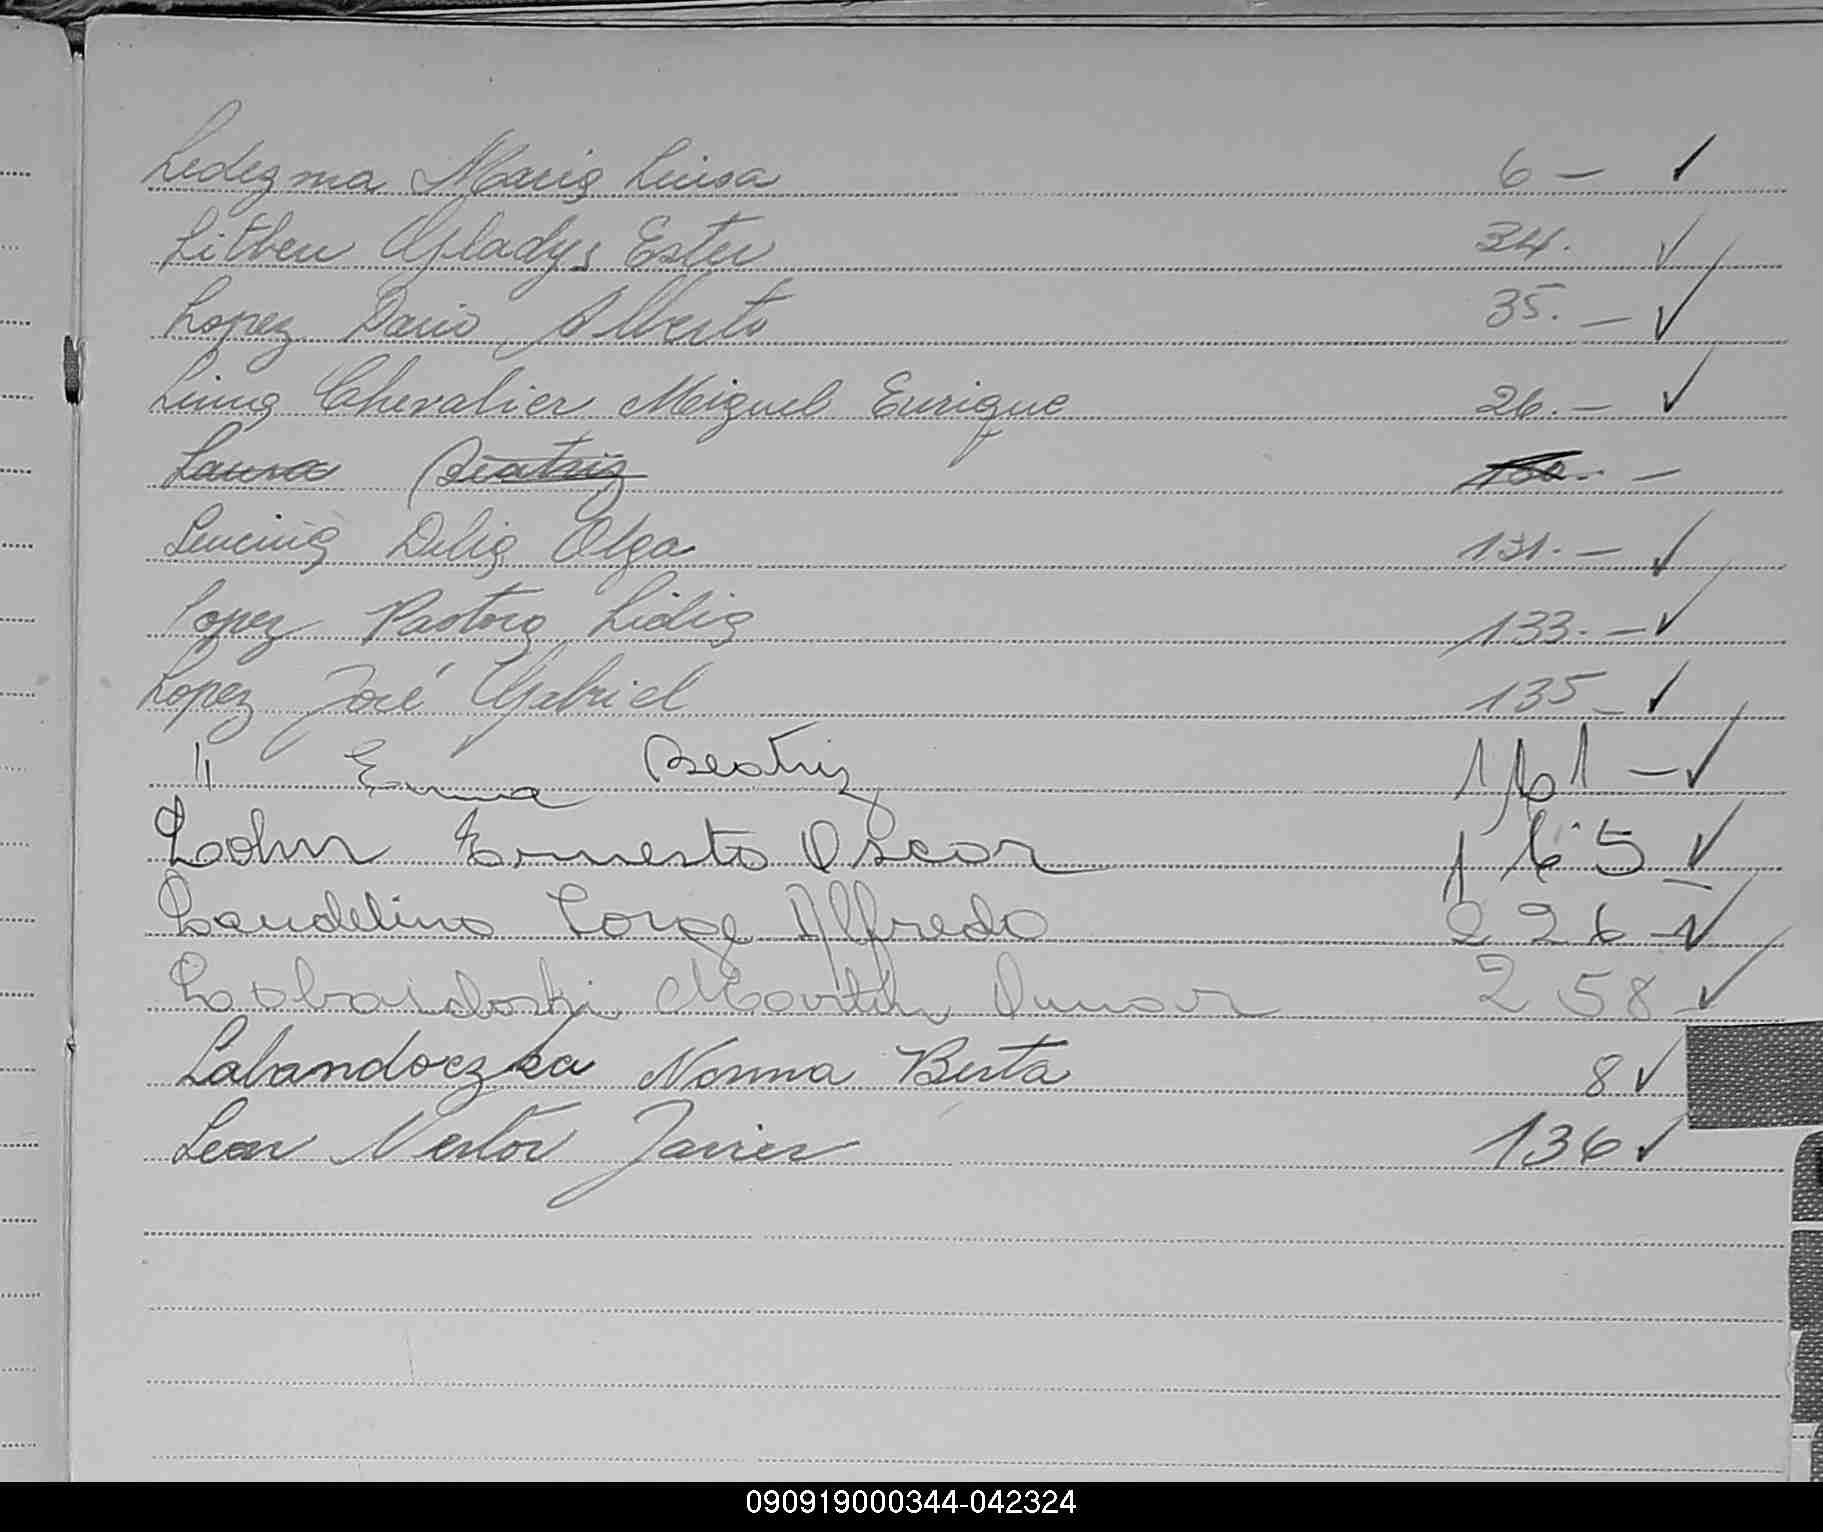 Ledezma Maria Luisa 6 - ✓
Litben Gladys Ester 34. ✓
Lopez Dario Alberto 35. - ✓
Luna Chevalier Miguel Enrique 26. - ✓
Laura Beatriz -
Delia Olga 131. - ✓
Lopez Pastora Lidia 133. - ✓
Lopez José Gabriel 135 - ✓
" Emma Beatriz 161 - ✓
Lohn Ernesto Oscar 165 ✓
Laudelino Jorge Alfredo 226 - ✓
Martin Omar 258 - ✓
Labandoczka Norma Berta 8 ✓
Leon Nestor Javier 136 ✓
090919000344-042324